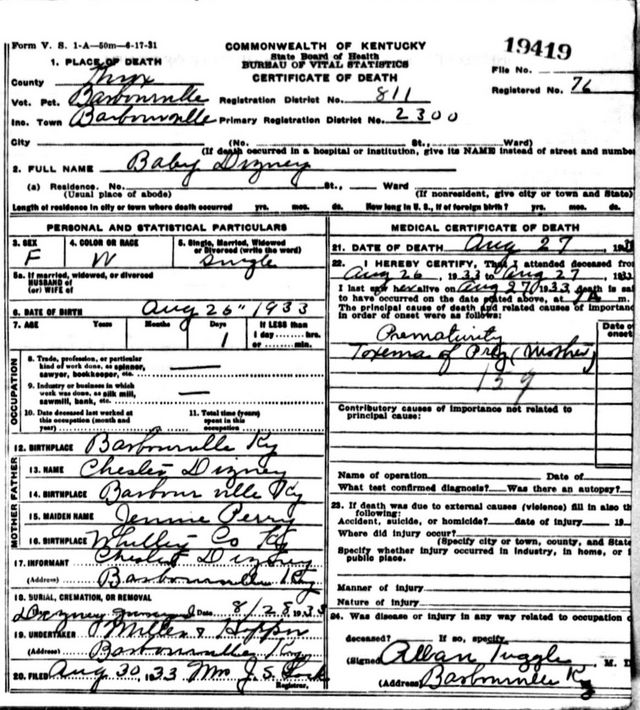 Form V. S. 1-A—50m—6-17-31
COMMONWEALTH OF KENTUCKY
State Board of Health
BUREAU OF VITAL STATISTICS
CERTIFICATE OF DEATH
19419
File No.
Registered No. 76
1. PLACE OF DEATH
County Knox
Vot. Pct. Barbourville Registration District No. 811
Inc. Town Barbourville Primary Registration District No. 2300
City (No. St., Ward)
(If death occurred in a hospital or institution, give its NAME instead of street and number
2. FULL NAME Baby Dizney
(a) Residence. No. St., Ward
(Usual place of abode) (If nonresident, give city or town and State)
Length of residence in city or town where death occurred yrs. mos. ds. How long in U. S., if of foreign birth? yrs. mos. ds.
PERSONAL AND STATISTICAL PARTICULARS
3. SEX 4. COLOR OR RACE 5. Single, Married, Widowed
or Divorced (write the word)
F W Single
5a. If married, widowed, or divorced
HUSBAND of
(or) WIFE of
6. DATE OF BIRTH Aug 26" 1933
7. AGE Years Months Days If LESS than
1 1 day hrs.
or min.
OCCUPATION
8. Trade, profession, or particular
kind of work done, as spinner,
sawyer, bookkeeper, etc. —
9. Industry or business in which
work was done, as silk mill,
sawmill, bank, etc. —
10. Date deceased last worked at
this occupation (month and
year)
11. Total time (years)
spent in this
occupation
12. BIRTHPLACE Barbourville Ky
FATHER
13. NAME Chester Dizney
14. BIRTHPLACE Barbourville Ky
MOTHER
15. MAIDEN NAME Jennie Perry
16. BIRTHPLACE Whitley Co Ky
17. INFORMANT Chester Dizney
(Address) Barbourville Ky
18. BURIAL, CREMATION, OR REMOVAL
Dizney Date 8/28 1933
19. UNDERTAKER Miller & Hopper
(Address) Barbourville Ky
20. FILED Aug 30, 1933 Mrs J. S.
Registrar.
MEDICAL CERTIFICATE OF DEATH
21. DATE OF DEATH Aug 27, 19
22. I HEREBY CERTIFY, That I attended deceased from
Aug 26, 1933 to Aug 27, 1933
I last saw her alive on Aug 27 1933 death is said
to have occurred on the date stated above, at m.
The principal cause of death and related causes of importance
in order of onset were as follows:
Date of
onset
Prematurity
Toxema of Preg (Mother)
159
Contributory causes of importance not related to
principal cause:
Name of operation Date of
What test confirmed diagnosis? Was there an autopsy?
23. If death was due to external causes (violence) fill in also the
following:
Accident, suicide, or homicide? date of injury 19
Where did injury occur?
(Specify city or town, county, and State
Specify whether injury occurred in industry, in home, or in
public place.
Manner of injury
Nature of injury
24. Was disease or injury in any way related to occupation of
deceased? If so, specify
(Signed) Alban Tuggle M. D
(Address) Barbourville Ky